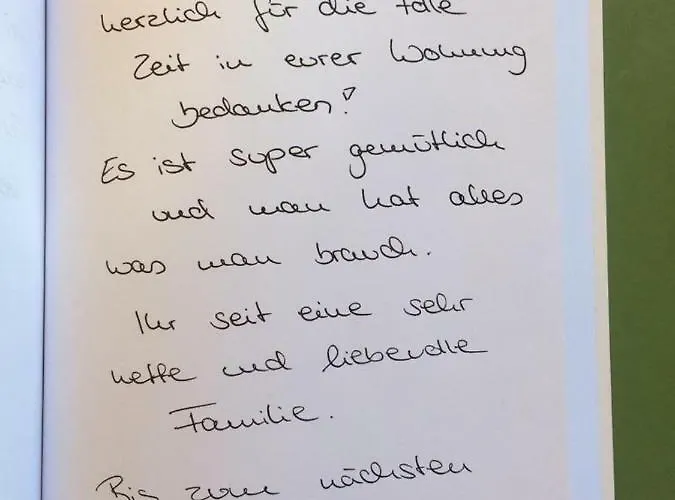 herzlich für die tolle
Zeit in eurer Wohnung
bedanken!
Es ist super gemütlich
und man hat alles
was man brauch.
Ihr seit eine sehr
nette und liebevolle
Familie.
Bis zum nächsten